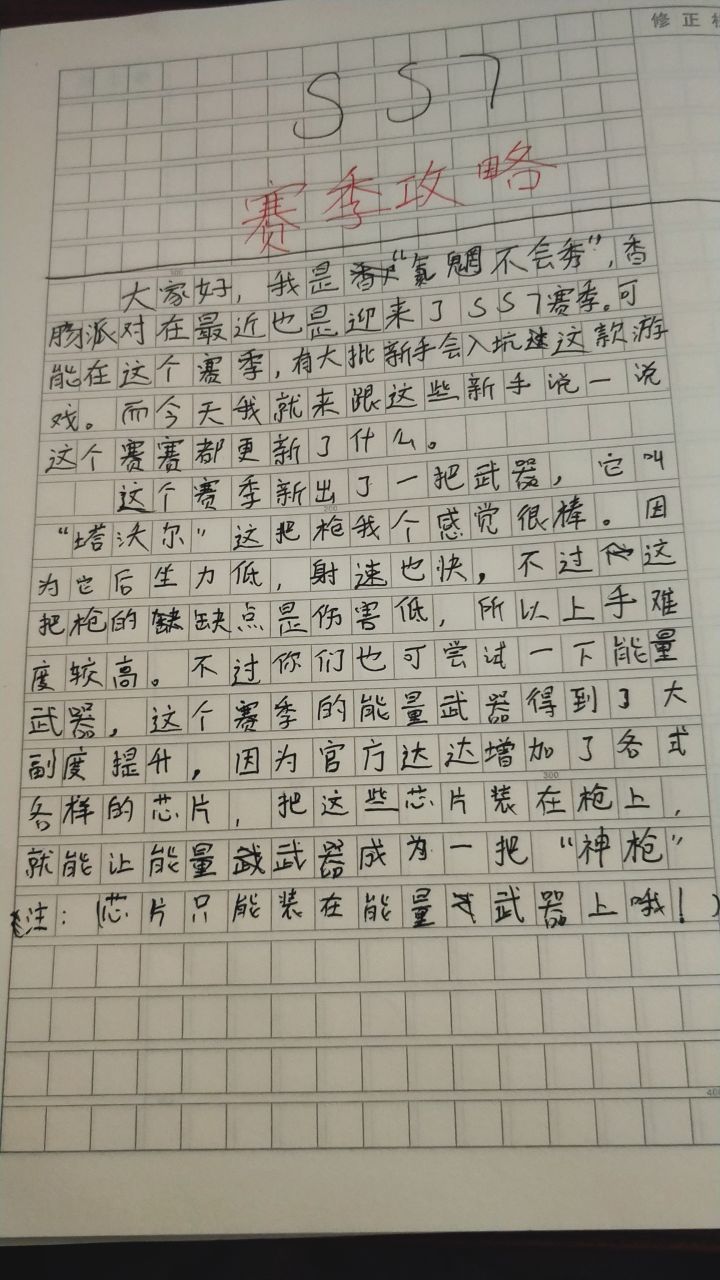 修正
SS7
赛季攻略
大家好，我是“氦魍不会秀”，香
肠派对在最近也是迎来了SS7赛季。可
能在这个赛季，有大批新手会入坑这款游
戏。而今天我就来跟这些新手说一说
这个赛赛都更新了什么。
这个赛季新出了一把武器，它叫
“塔沃尔”这把枪我个感觉很棒。因
为它后坐力低，射速也快，不过这
把枪的缺点是伤害低，所以上手难
度较高。不过你们也可尝试一下能量
武器，这个赛季的能量武器得到了大
副度提升，因为官方达达增加了各式
各样的芯片，把这些芯片装在枪上，
就能让能量武器成为一把“神枪”
注：（芯片只能装在能量武器上哦！）
200
300